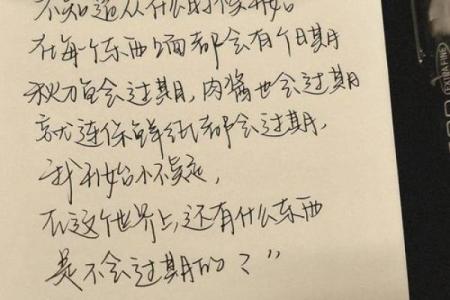 不知道从什么时候开始
在每个东西上面都会有个日期
秋刀鱼会过期,肉酱也会过期
就连保鲜纸都会过期,
我开始怀疑,
在这个世界上,还有什么东西
是不会过期的?”
EXTRA FINE